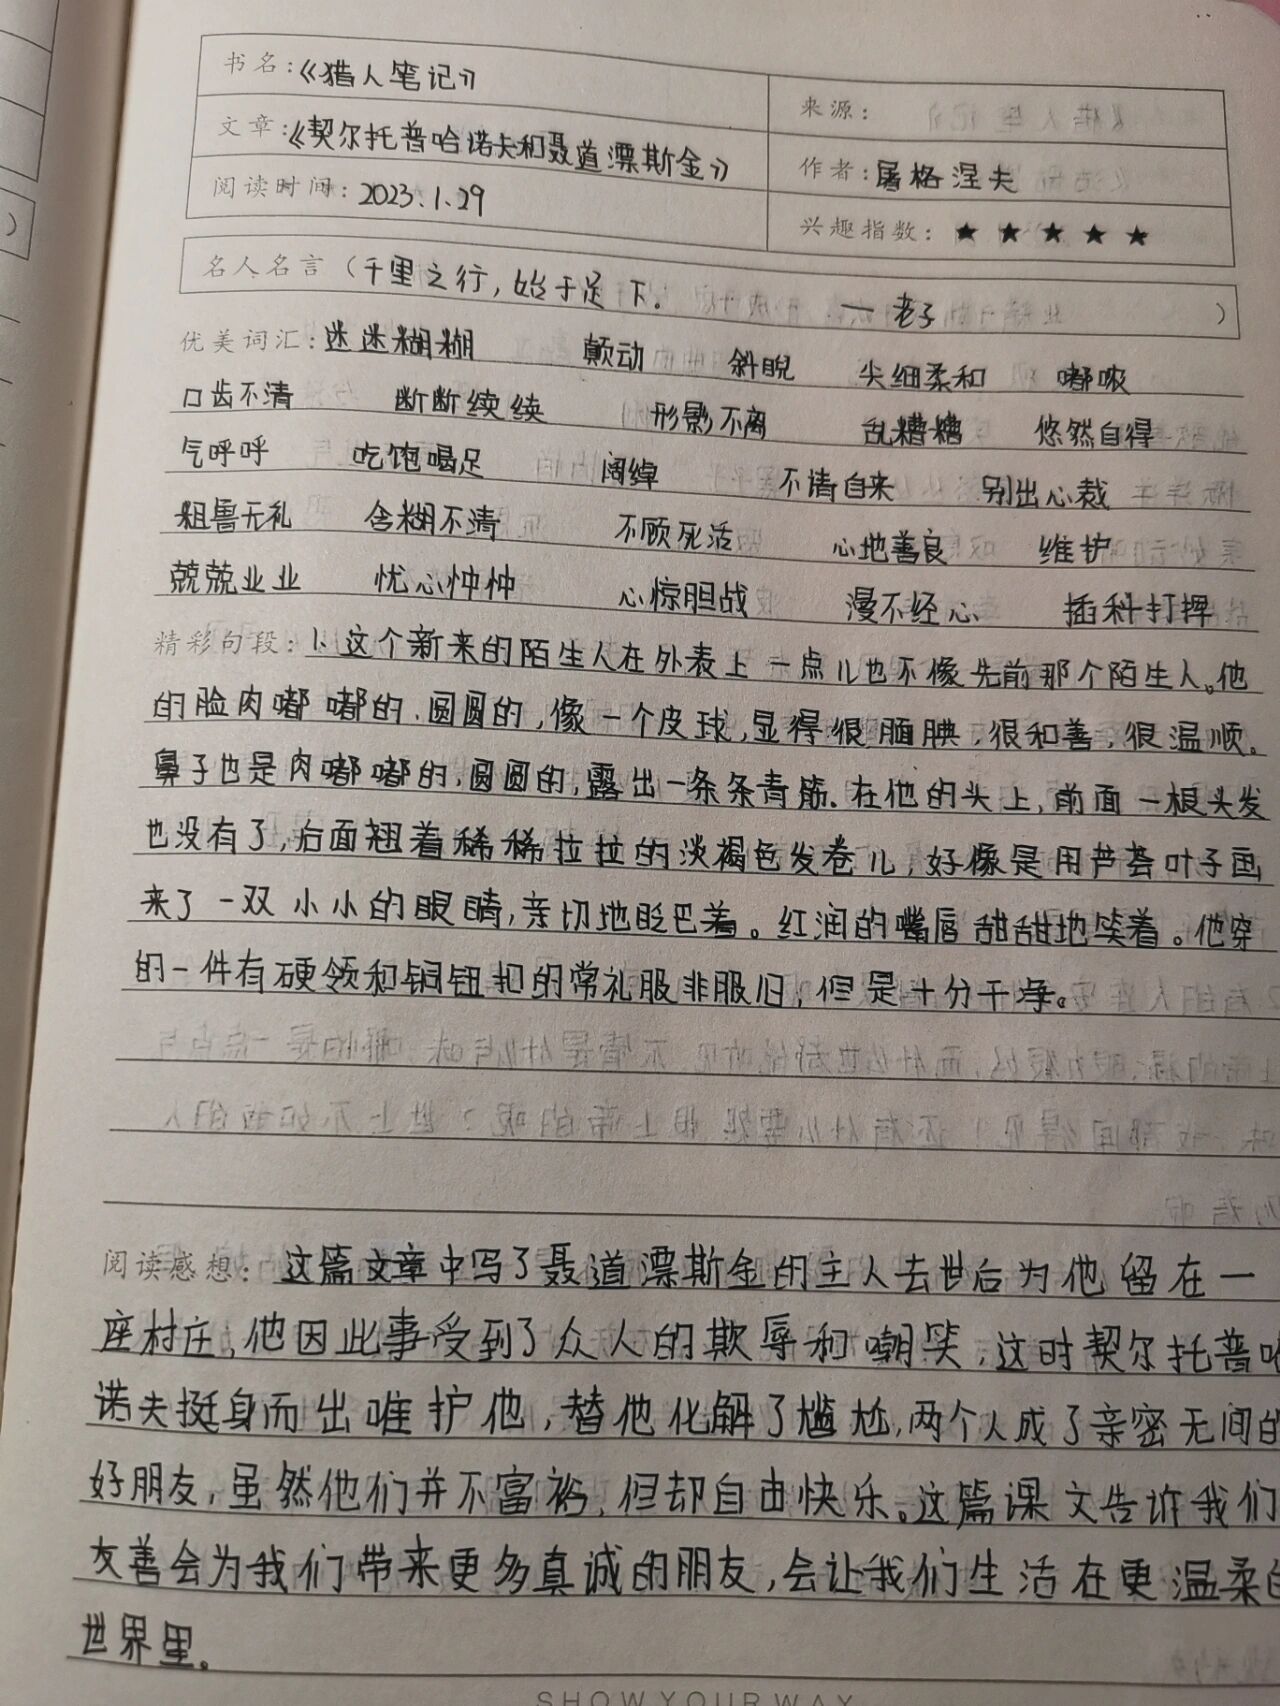 书名:《猎人笔记》
来源:
文章:《契尔托普哈诺夫和聂道漂斯金》
作者:屠格涅夫
阅读时间:2023.1.29
兴趣指数:★★★★★
名人名言(千里之行,始于足下。 —老子)
优美词汇:迷迷糊糊 颠动 斜睨 尖细柔和 嘟哝
口齿不清 断断续续 形影不离 乱糟糟 悠然自得
气呼呼 吃饱喝足 阔绰 不请自来 别出心裁
粗鲁无礼 含糊不清 不顾死活 心地善良 维护
兢兢业业 忧心忡忡 心惊胆战 漫不经心 插科打捍
精彩句段:1.这个新来的陌生人在外表上一点儿也不像先前那个陌生人。他
的脸肉嘟嘟的,圆圆的,像一个皮球,显得很腼腆,很和善,很温顺。
鼻子也是肉嘟嘟的,圆圆的,露出一条条青筋.在他的头上,前面一根头发
也没有了,后面翘着稀稀拉拉的淡褐色发卷儿,好像是用芦荟叶子画
来了一双小小的眼睛,亲切地眨巴着。红润的嘴唇甜甜地笑着。他穿
的一件有硬领和铜钮扣的常礼服非服旧,但是十分干净。
阅读感想:这篇文章中写了聂道漂斯金的主人去世后为他留在一
座村庄,他因此事受到了众人的欺辱和嘲笑,这时契尔托普哈
诺夫挺身而出唯护他,替他化解了尴尬,两个人成了亲密无间的
好朋友,虽然他们并不富裕,但却自由快乐。这篇课文告诉我们
友善会为我们带来更多真诚的朋友,会让我们生活在更温柔的
世界里。
SHOW YOUR WAY